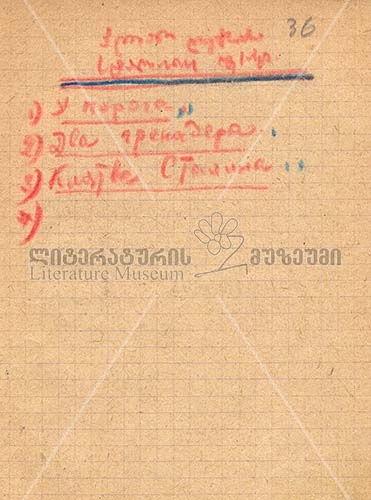 36
1) У порога „
2) Два гренадера.
3) Клятва Сталина
4)
ლიტერატურის მუზეუმი
Literature Museum